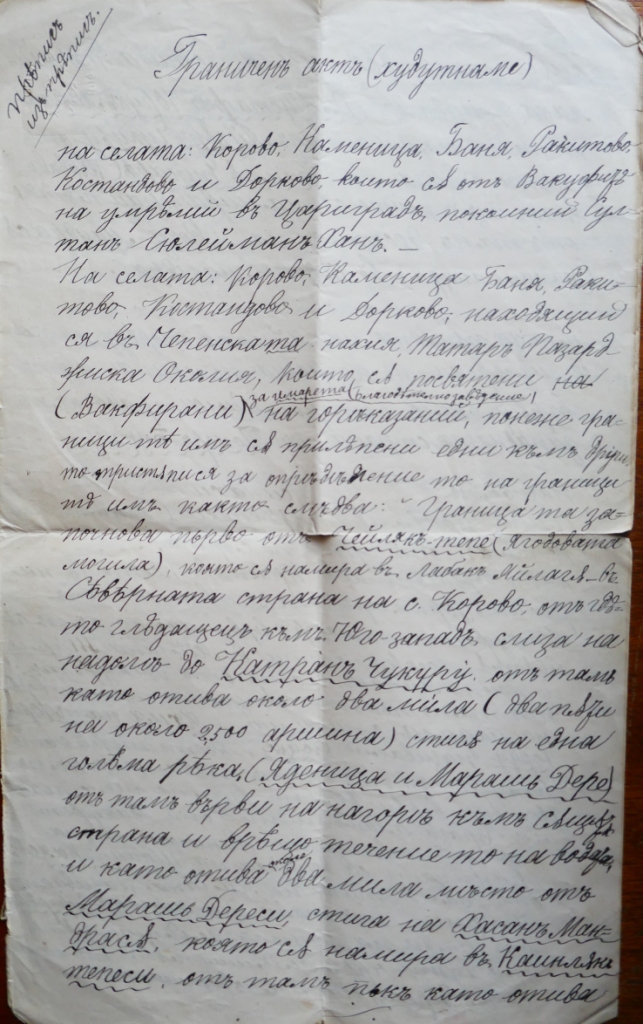 прѣписъ
изъ прѣпис.
Граниченъ актъ (худутнаме)
на селата: Корово, Каменица, Баня, Ракитово,
Костандово и Дорково, които сѫ отъ Вакуфитѣ
на умрѣлий въ Цариградъ покойний Сул-
танъ Сюлейманъ Ханъ. —
На селата: Корово, Каменица Баня, Раки-
тово, Костандово и Дорково, находящи
ся въ Чепенската нахия, Татаръ Пазард
жиска Околия, които сѫ посвятени на
за имарета (благодѣтелно заведение)
(Вакфирани) на горѣказаний, понеже гра-
ници тѣ имъ сѫ прилѣпени едни къмъ други,
то пристѫпися за опрѣдѣление то на граници
тѣ имъ както слѣдва: "Граница та за-
почнова първо отъ Чейлякъ-тепе (Ягодовата
могила), която сѫ намира въ Лабакъ Яйлагѫ — въ
Сѣвѣрната страна на с. Корово, отъ гдѣ-
то глѣдащецъ къмъ Юго западъ, слиза на
надолъ до Катранъ Чукуру, отъ тамъ
като отива около два мила (два пѫти
на около 2500 аршина) стига на една
голѣма рѣка, (Яденица и Марашъ Дере)
отъ тамъ върви на нагорѣ къмъ сѫщата
страна и врѣщо течение то на водата,
и като отива около два мила мѣсто отъ
Марашъ Дереси, стига на Хасанъ Ман-
драсѫ, която сѫ намира въ Каинлякъ
тепеси, отъ тамъ пъкъ като отива